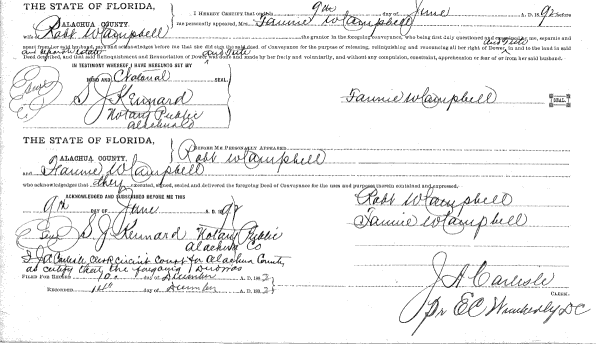 THE STATE OF FLORIDA,
ALACHUA COUNTY.
I HEREBY CERTIFY that on this 9th day of June A. D. 1892 before
me personally appeared, Mrs. Fannie W Campbell
wife of Robt W Campbell the grantor in the foregoing conveyance, who, being first duly questioned and examined by me, separate and
apart from her said husband, did and acknowledges before me that she did sign the said deed of Conveyance for the purpose of releasing, relinquishing and renouncing all her right of Dower and Title in and to the land in said
Deed described, and that said Relinquishment and Renunciation of Dower and Title was done and made by her freely and voluntarily, and without any compulsion, constraint, apprehension or fear of or from her said husband.
IN TESTIMONY WHEREOF I HAVE HEREUNTO SET MY
HAND AND Notarial SEAL.
S J Kennard
Notary Public
Alachua Co
Fannie W Campbell
SEAL.
THE STATE OF FLORIDA,
ALACHUA COUNTY.
BEFORE ME PERSONALLY APPEARED Robt W Campbell
and Fannie W Campbell
who acknowledges that they executed, signed, sealed and delivered the foregoing Deed of Conveyance for the uses and purposes therein contained and expressed.
ACKNOWLEDGED AND SUBSCRIBED BEFORE ME THIS
9th DAY OF June A. D. 1892
Robt W Campbell
Fannie W Campbell
S J Kennard Notary Public
Alachua Co
I J A Carlisle Clerk Circuit Court for Alachua County
do certify that the forgoing
FILED FOR RECORD 10th day of December A. D. 1892
RECORDED 14th day of December A. D. 1892
J A Carlisle
CLERK.
Pr E C Wimberly D C